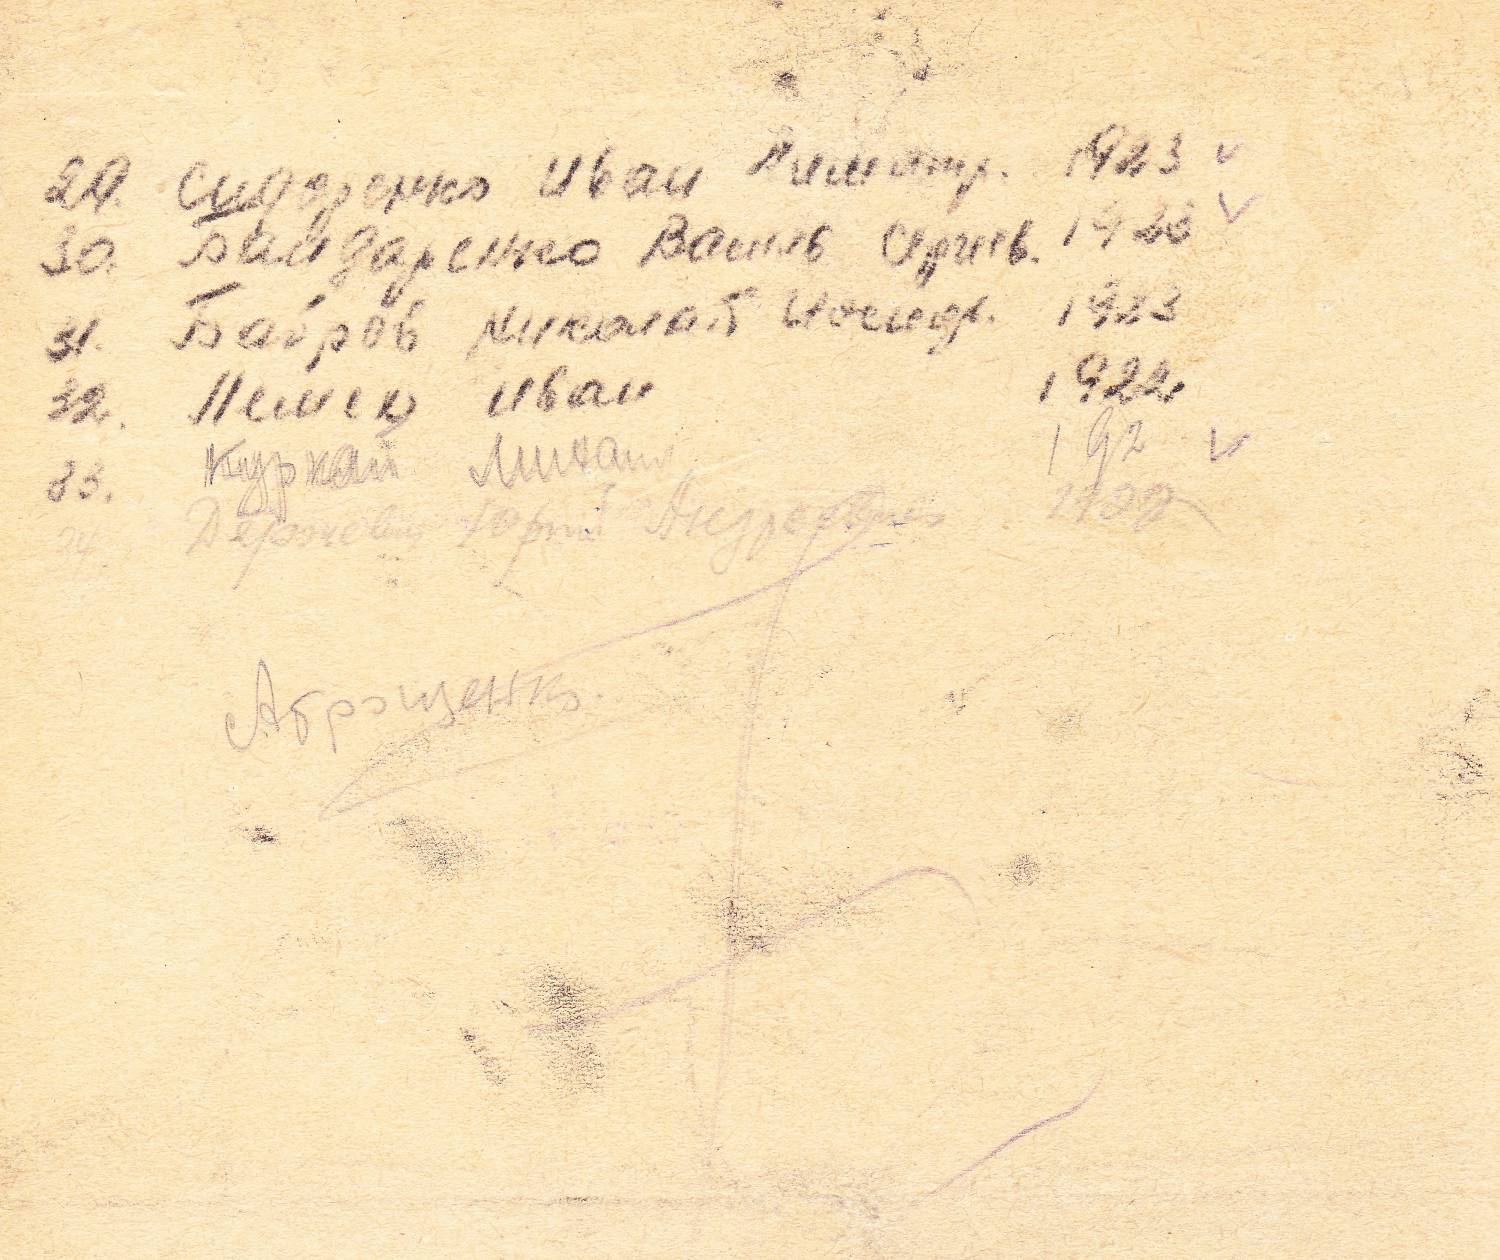 29. Сидаренко Иван Димитр. 1923 ✓
30. Бандаренко Василь Сергиев. 1923 ✓
31. Бобров Николай Иосиф. 1923
32. Немек Иван 1922
33. Куркай Михаил 192 ✓
34. Юрий Андреевич 1922
Абрященко.